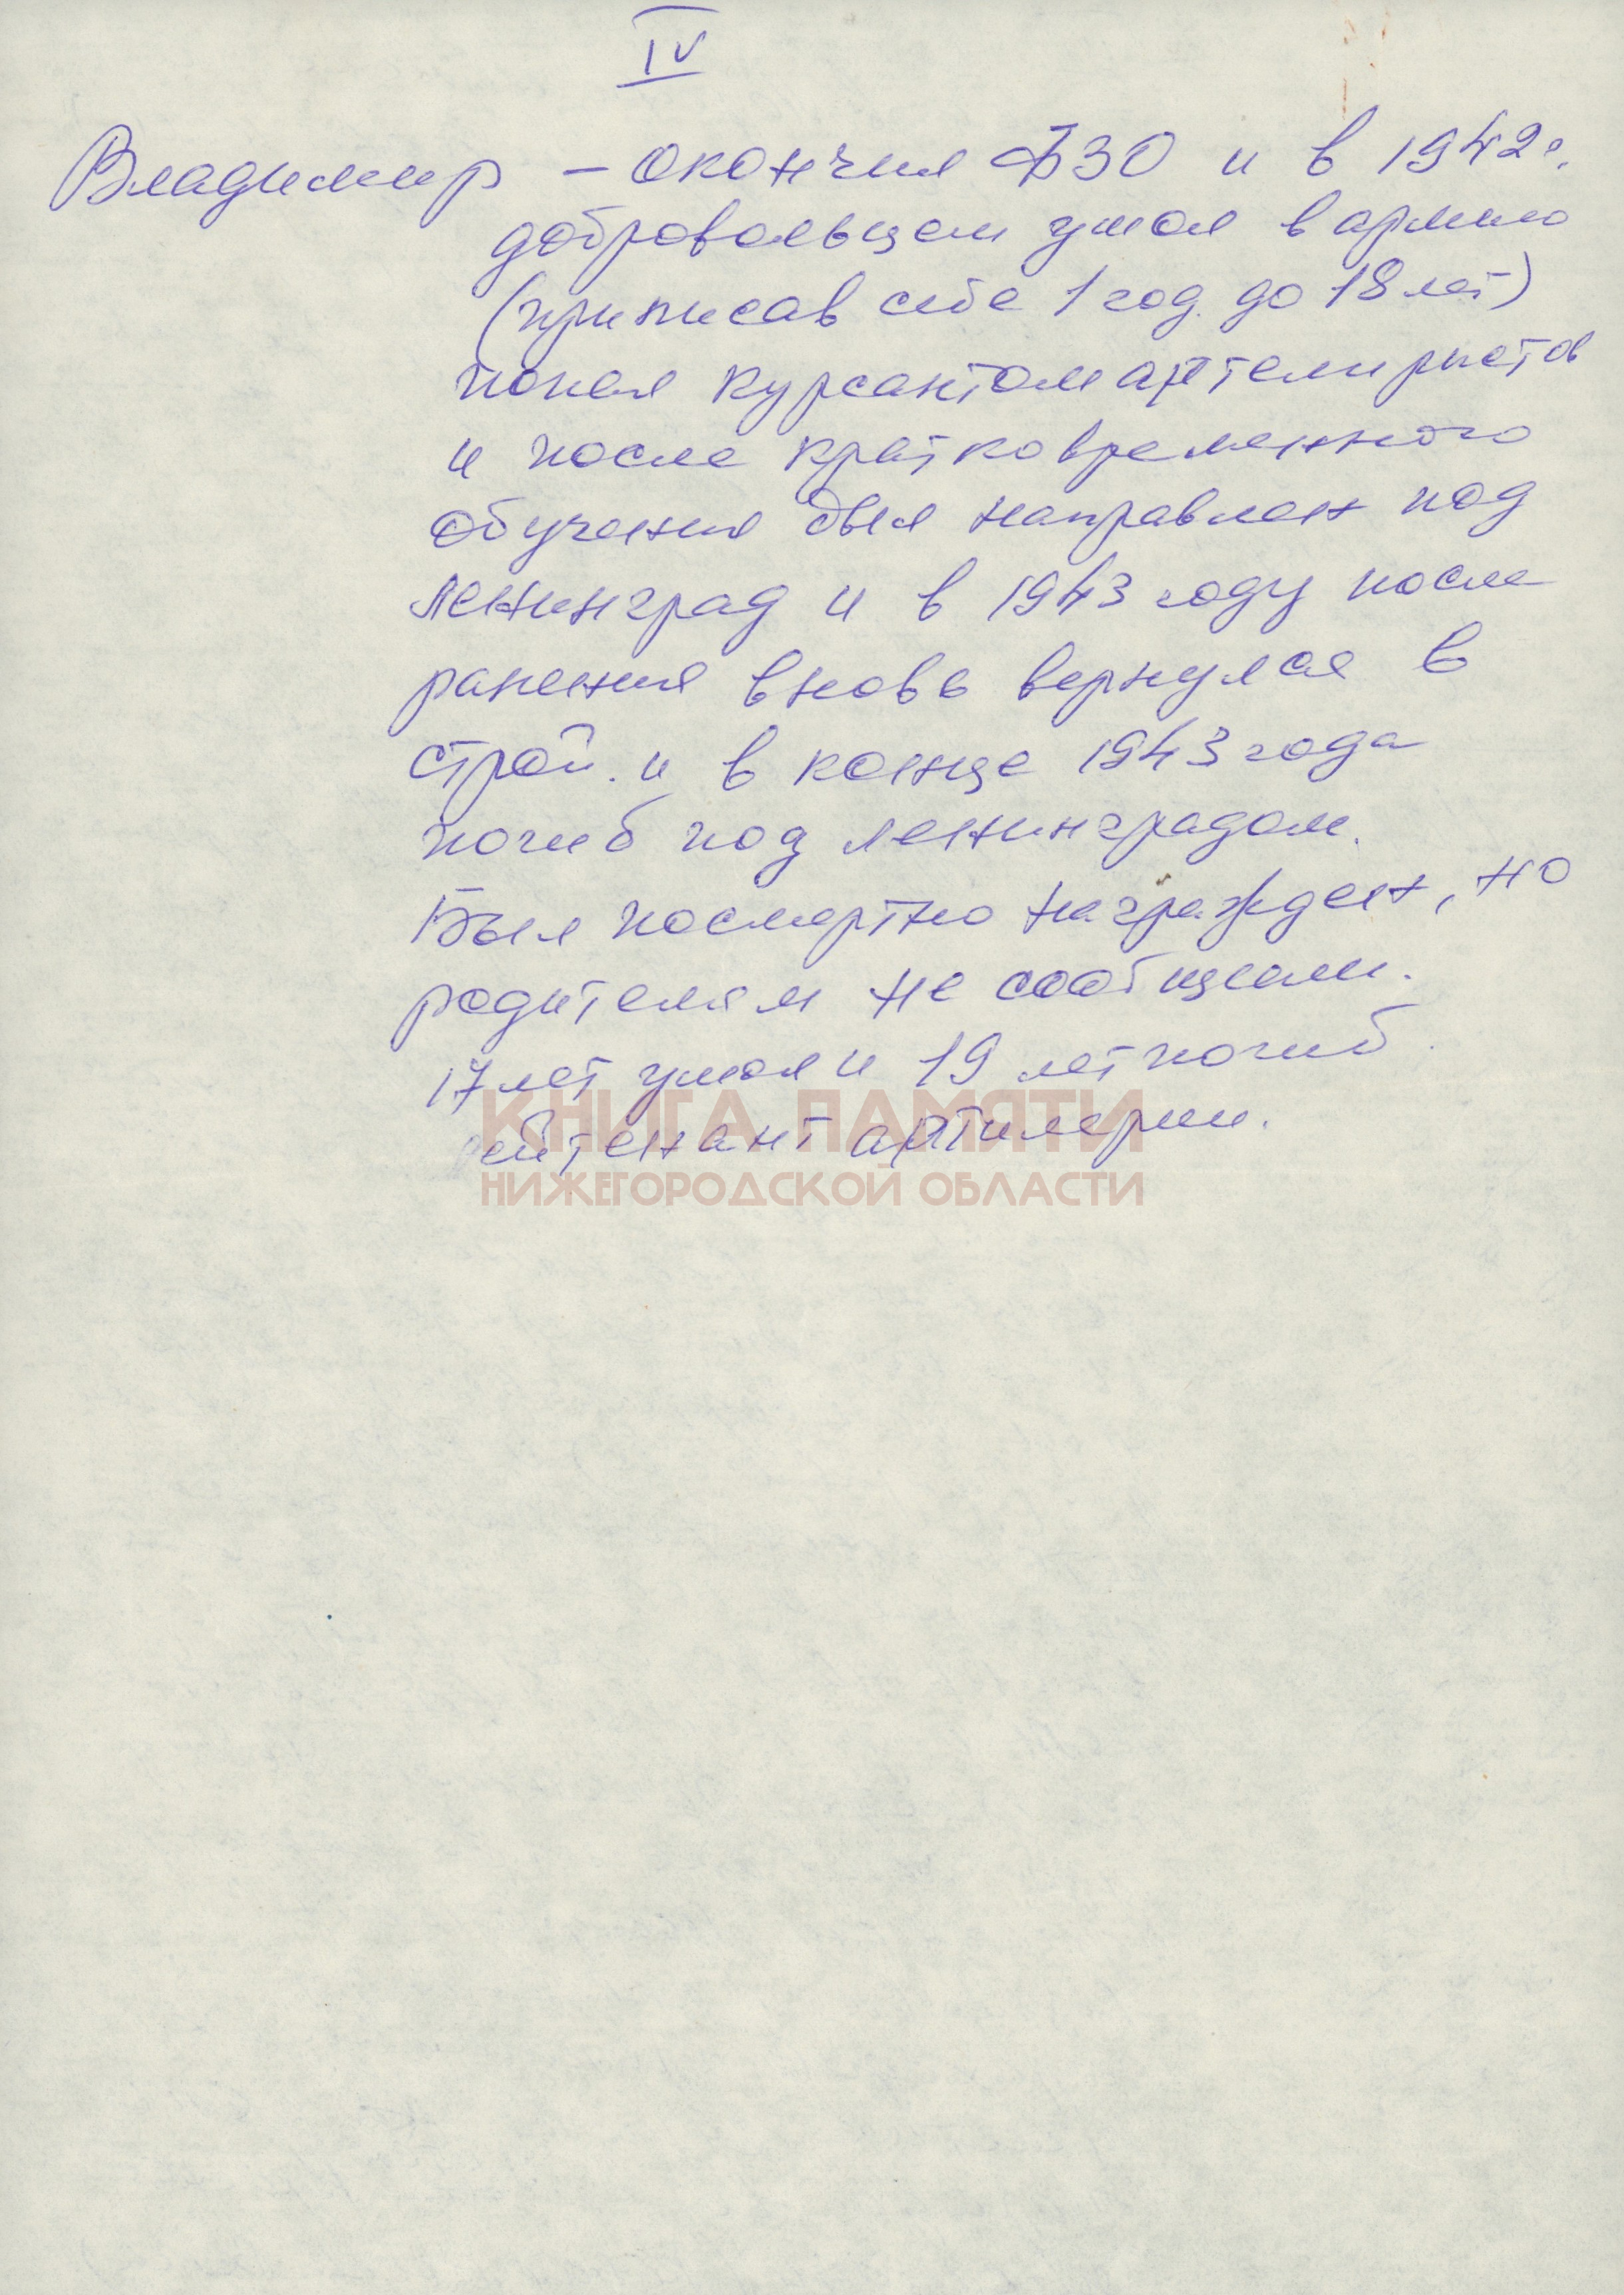 IV
Владимир – окончил ФЗО и в 1942г.
добровольцем ушол в армию
(приписав себе 1 год до 18 лет)
попал курсантом артелиристов
и после кратковременного
обучения был направлен под
Ленинград и в 1943 году после
ранения вновь вернулся в
строй. и в конце 1943 года
погиб под Ленинградом.
Был посмертно награжден, но
родителям не сообщили.
17 лет ушол и 19 лет погиб.
лейтенант артилерии.
КНИГА ПАМЯТИ
НИЖЕГОРОДСКОЙ ОБЛАСТИ